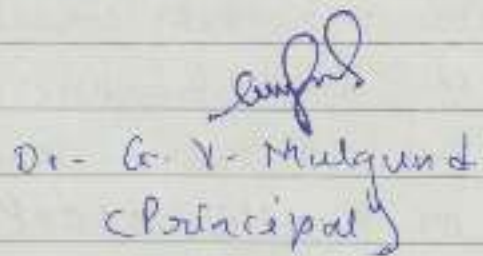 Dr- G. V- Mulgund
(Principal)